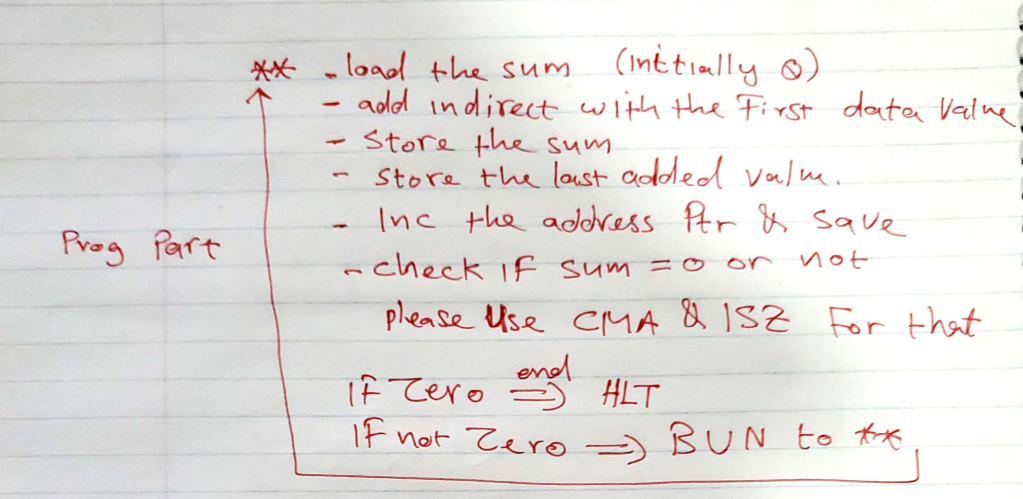 ** - load the sum (inttially 0)
- add indirect with the First data Value
- Store the sum
- store the last added value.
- Inc the address Ptr & save
Prog Part
- check if sum = 0 or not
please Use CMA & ISZ For that
IF Zero end => HLT
IF not Zero => BUN to **